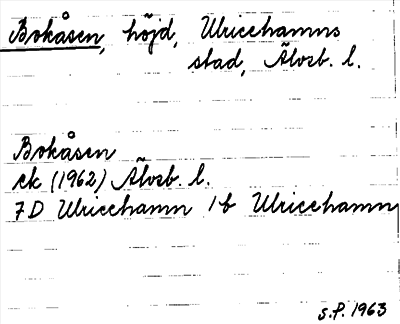 Bokåsen, höjd, Ulricehamns
stad, Älvsb. l.
Bokåsen
ek (1962) Älvsb. l.
7 D Ulricehamn 1b Ulricehamn
S.P. 1963